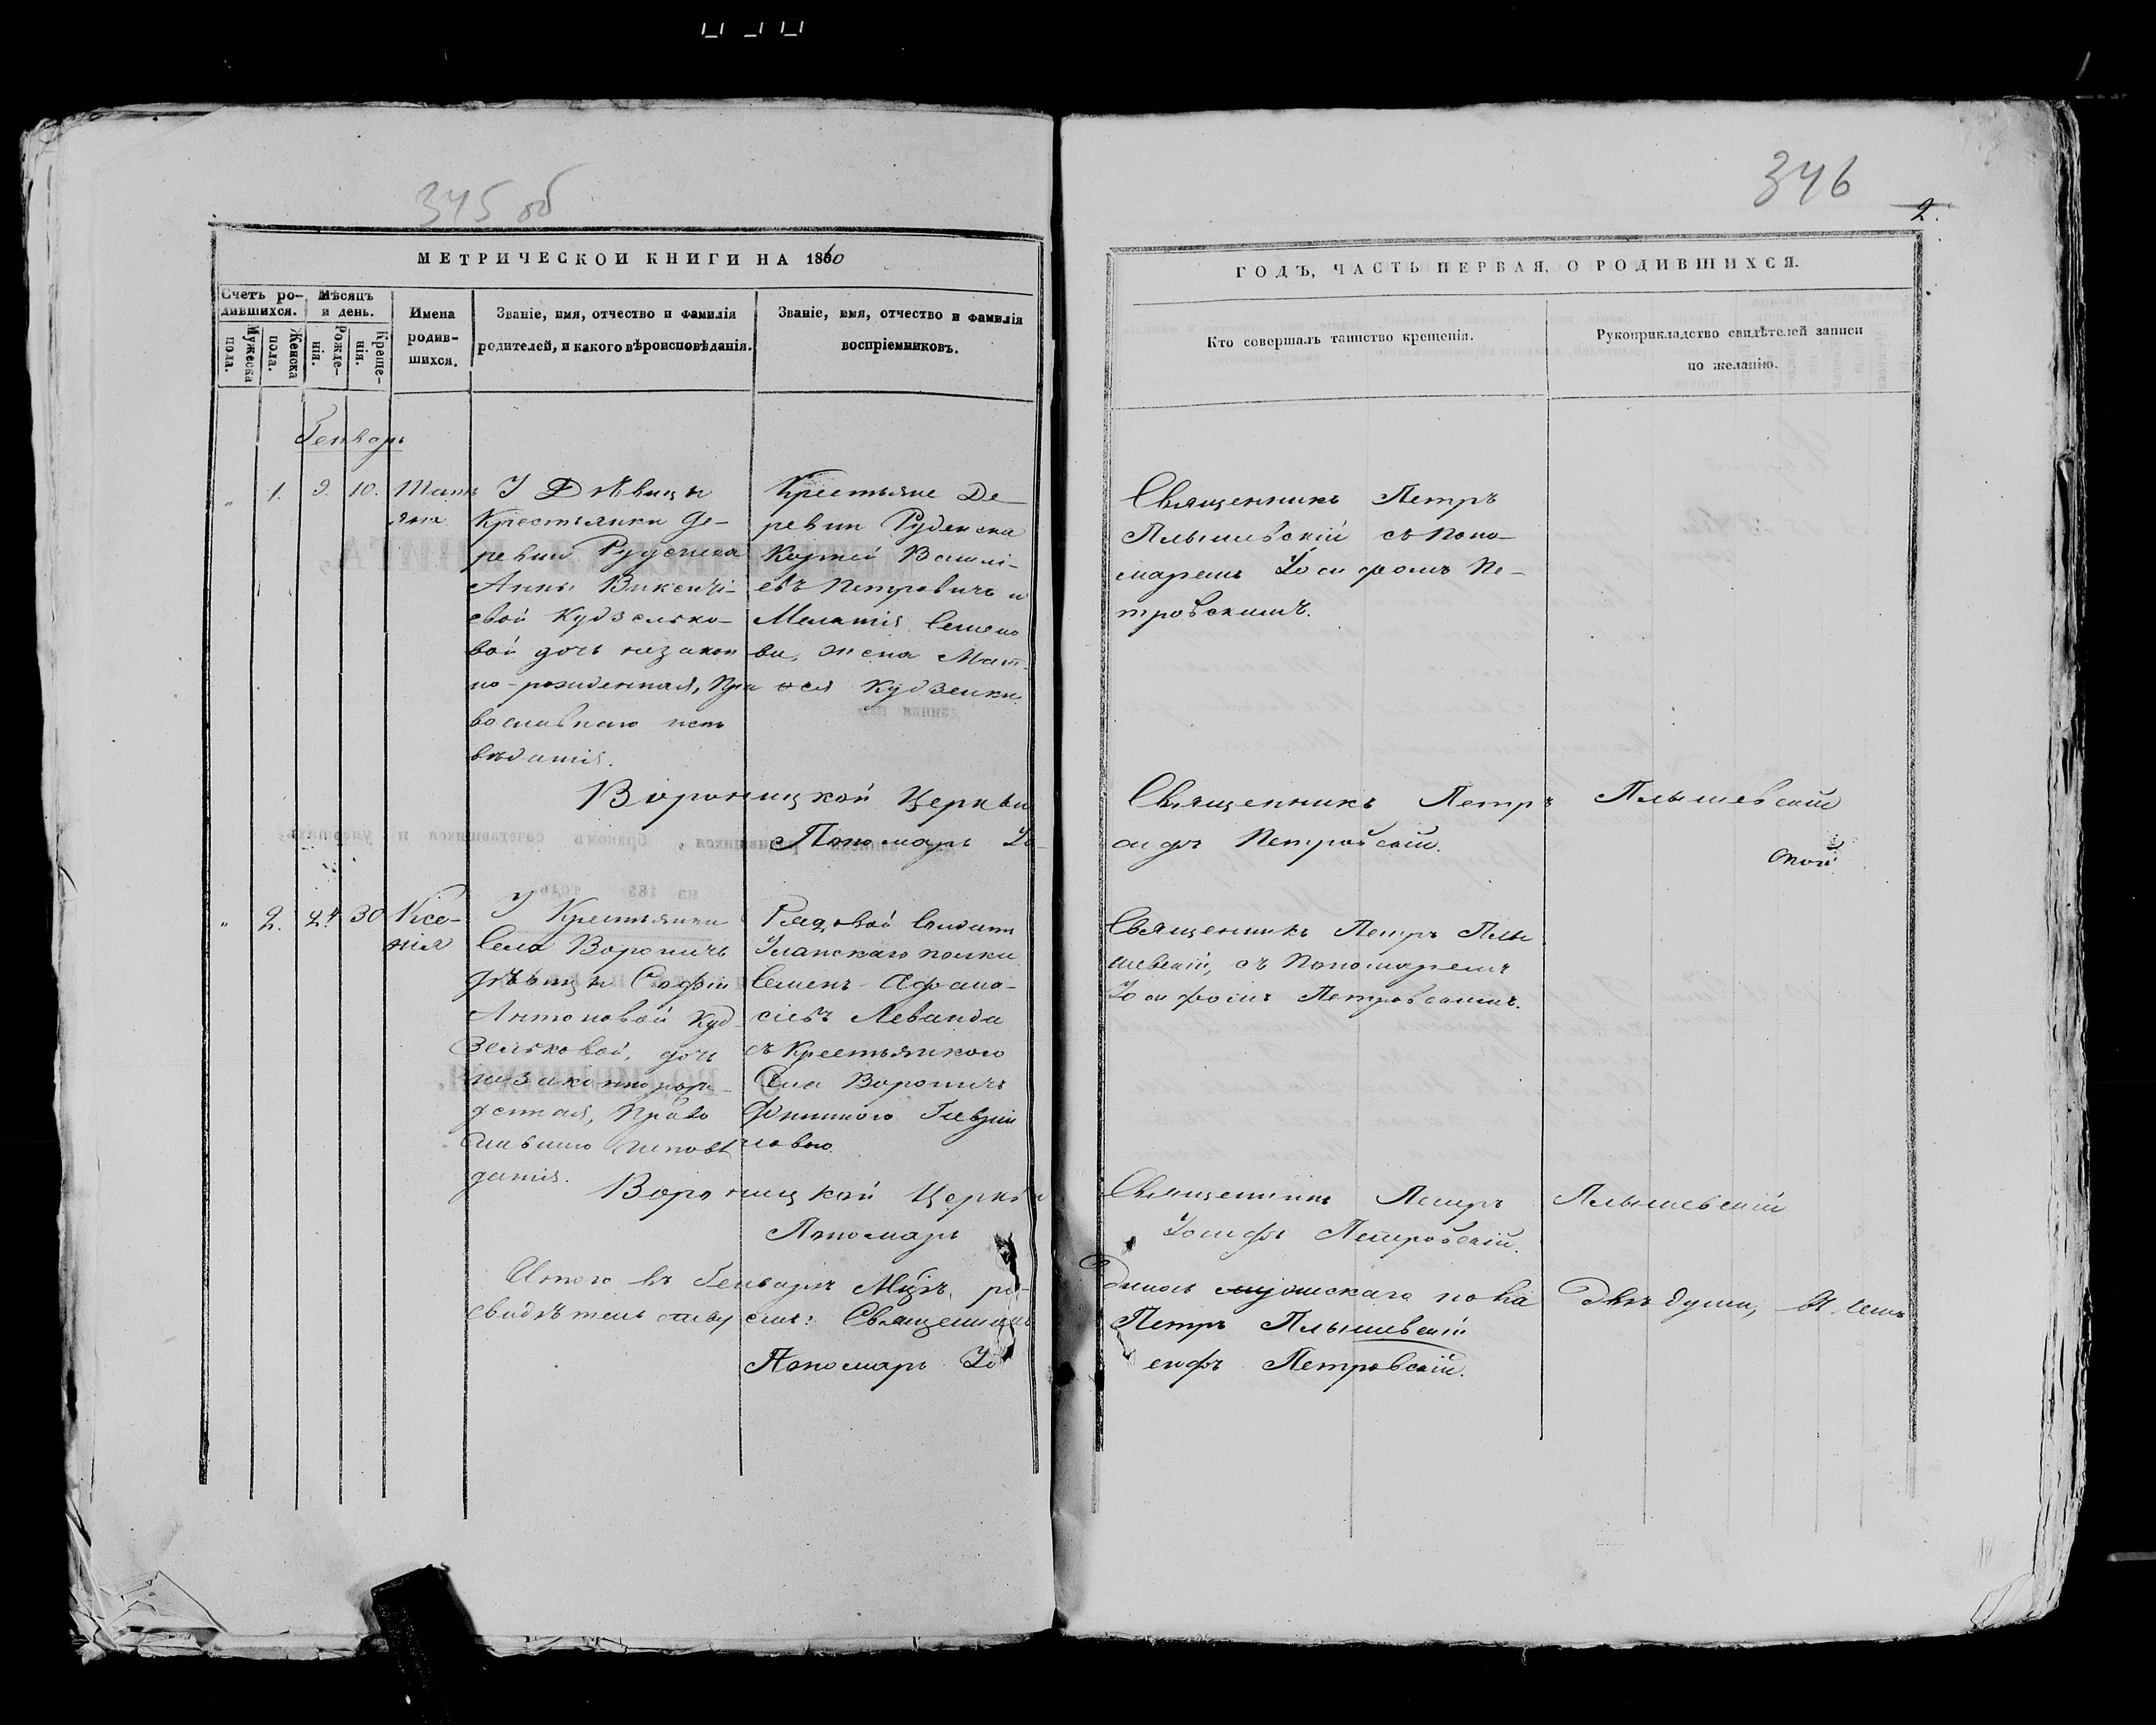 345 об
МЕТРИЧЕСКОЙ КНИГИ НА 1860
Счетъ ро-
дившихся.
Мѣсяцъ
и день.
Мужеска
пола.
Женска
пола.
Рожде-
нія.
Креще-
нія.
Имена
родив-
шихся.
Званіе, имя, отчество и фамилія
родителей, и какого вѣроисповѣданія.
Званіе, имя, отчество и фамилія
воспріемниковъ.
Генварь
" 1. 9. 10.
Тать
яна
У Дѣвицы
Крестьянки де-
ревни Руденска
Анны Викенті-
евой Кудзелько-
вой дочь незакон
но-рожденная, Пра
вославнаго испо
вѣданія.
Крестьяне Де-
ревни Руденска
Корней Василі-
евъ Петровичъ и
Мелатія Семено
ва, жена Мат-
ѳея Кудзелки.
Вороницкой Церкви
Пономарь Іо-
" 2. 24. 30
Ксе-
нія
У Крестьянки
Села Вороничъ
дѣвицы Софіи
Антоновой Куд
зельковой, дочь
незаконнорож-
денная, Право
славнаго исповѣ
данія.
Рядовой
Уланскаго полка
Семенъ Афана-
сіевъ Леванда
съ Крестьянкою
Села Вороничъ
Гаврии
ловою
Вороницкой Церкви
Пономарь
Итого въ Генварѣ Мцѣ, ро-
свидѣтельствуемъ: Священникъ
Пономарь Іо
346
2.
ГОДЪ, ЧАСТЬ ПЕРВАЯ, О РОДИВШИХСЯ.
Кто совершалъ таинство крещенія.
Рукоприкладство свидѣтелей записи
по желанію.
Священникъ Петръ
Плышевскій съ Поно-
маремъ Іосифомъ Пе-
тровскимъ.
Священникъ Петръ Плышевскій
сифъ Петровскій.
Священникъ Петръ Плы
шевскій, съ Пономаремъ
Іосифомъ Петровскимъ.
Священникъ Петръ Плышевскій
Іосифъ Петровскій.
дилось женскаго пола двѣ души, въ чемъ
Петръ Плышевскій
сифъ Петровскій.